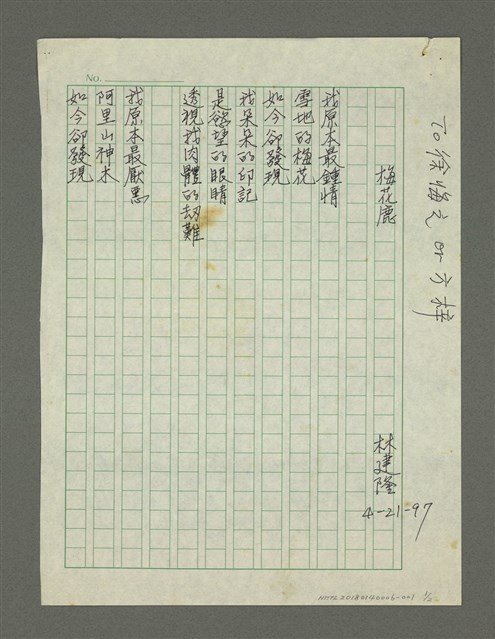 To 徐悔之 or 方梓
梅花鹿
林建隆
4-21-97
我原本最鍾情
雪地的梅花
如今卻發現
我朵朵的印記
是慾望的眼睛
透視我肉體的劫難
我原本最厭惡
阿里山神木
如今卻發現
No.
NMTL20180140006-001 1/2